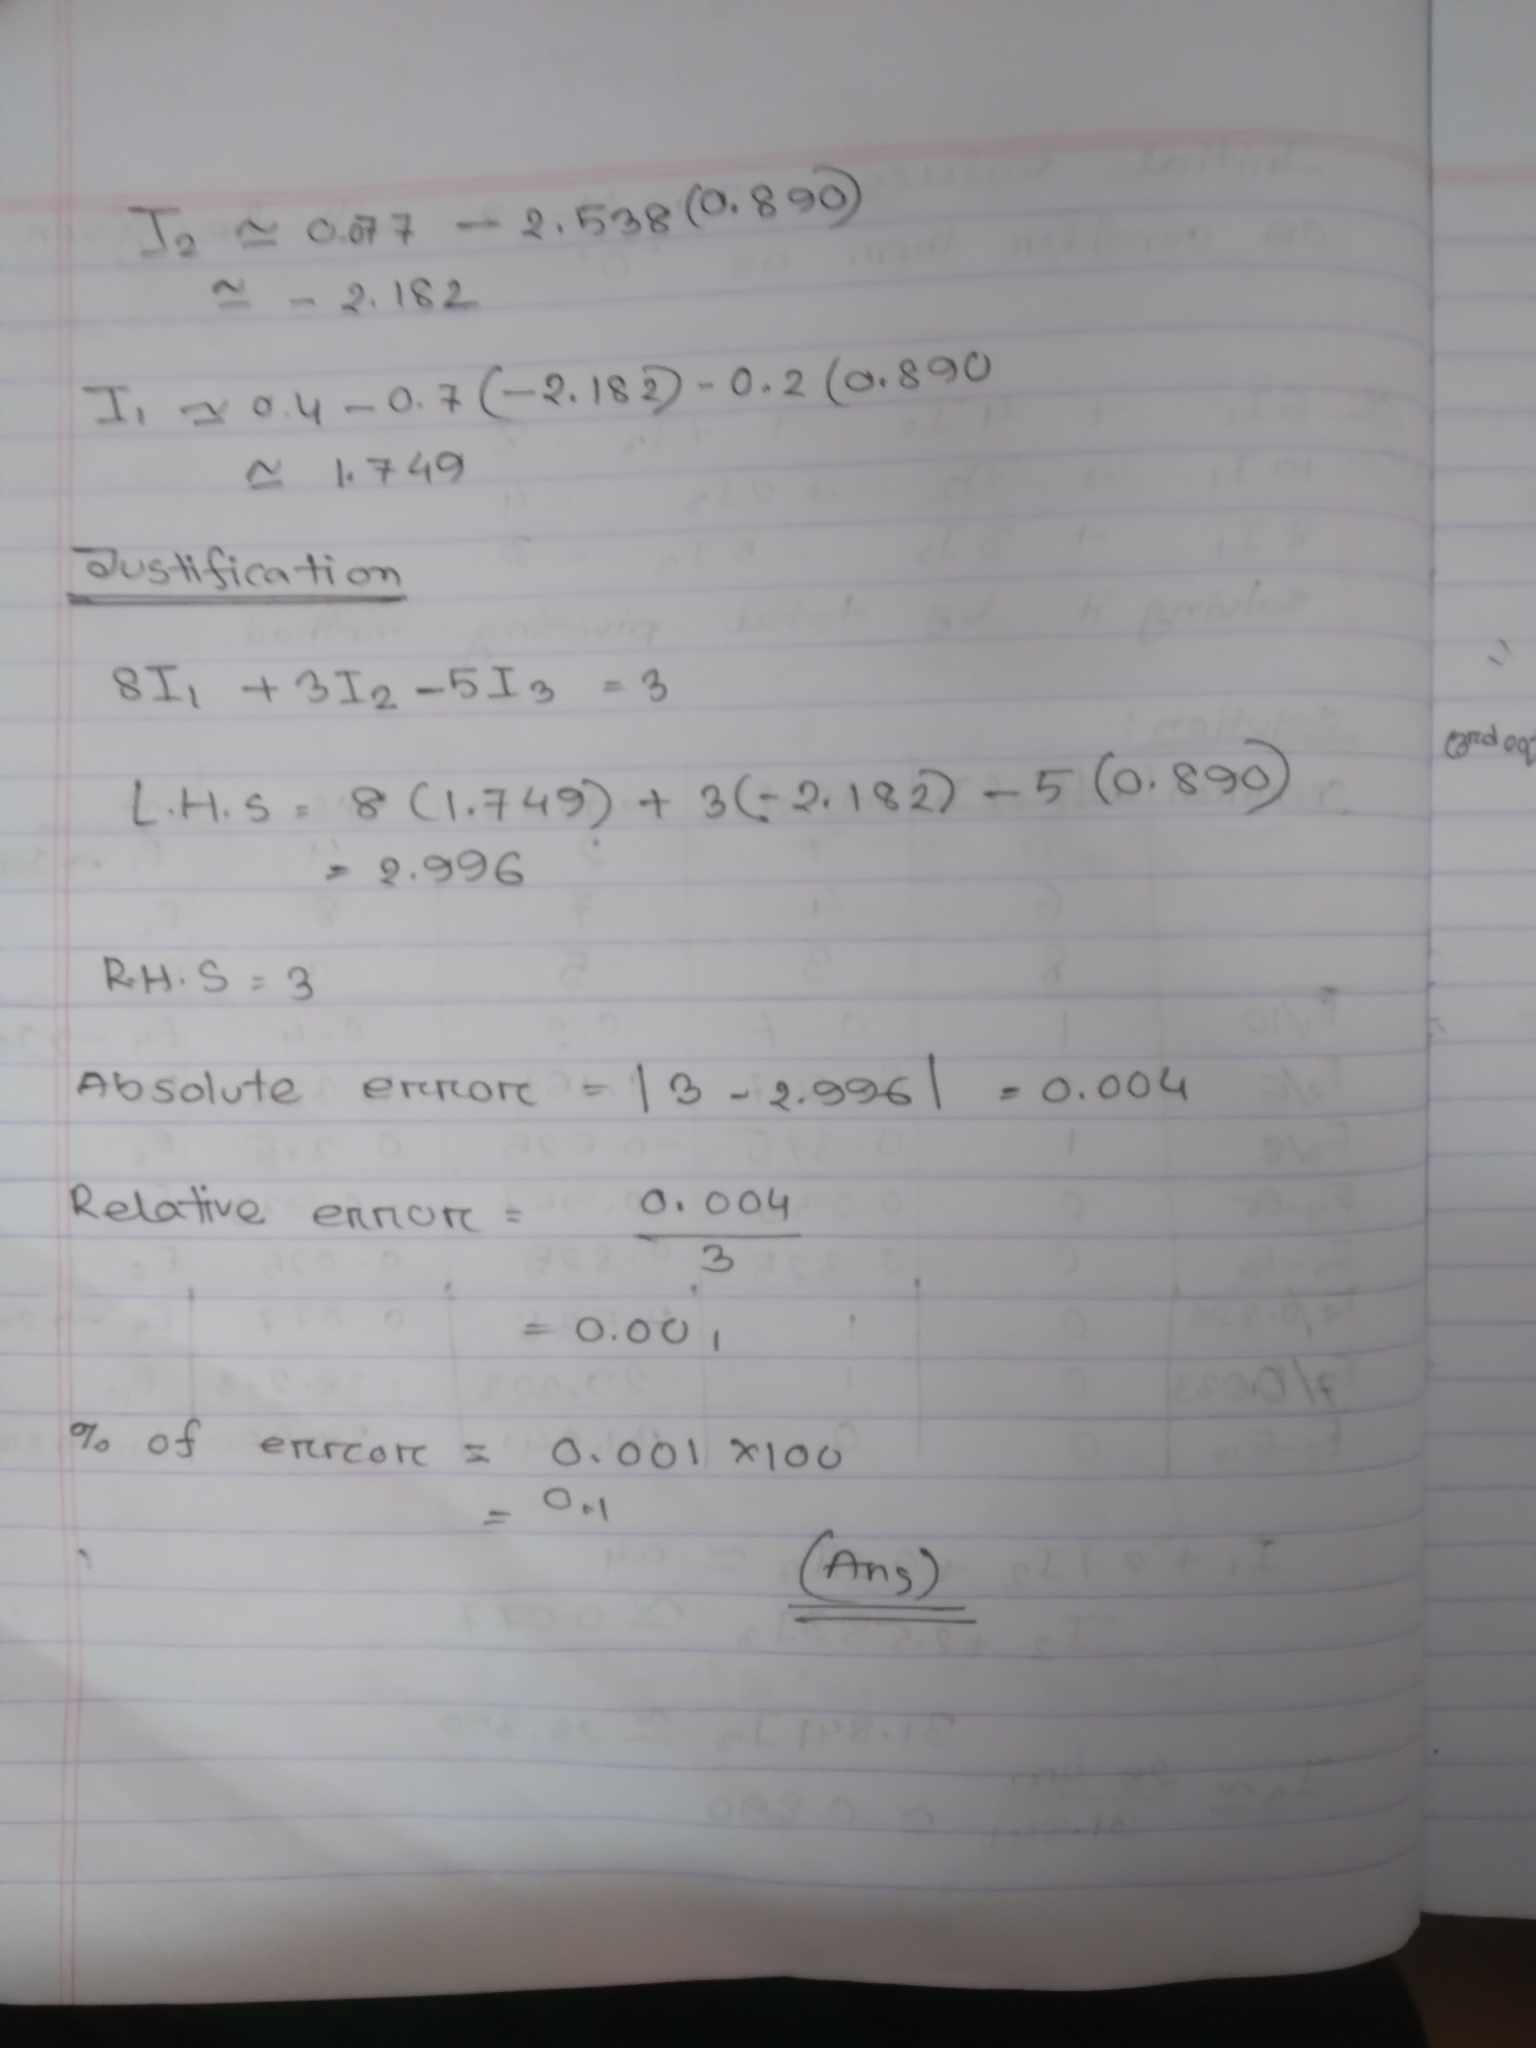 I₂ ≃ 0.077 - 2.538 (0.890)
≃ - 2.182
I₁ ≃ 0.4 - 0.7 (-2.182) - 0.2 (0.890
≃ 1.749
Justification
8I₁ + 3I₂ - 5I₃ = 3
L.H.S = 8 (1.749) + 3(-2.182) - 5 (0.890)
= 2.996
R.H.S = 3
Absolute error = | 3 - 2.996 | = 0.004
Relative error = 0.004
3
= 0.001
% of error = 0.001 × 100
= 0.1
(Ans)